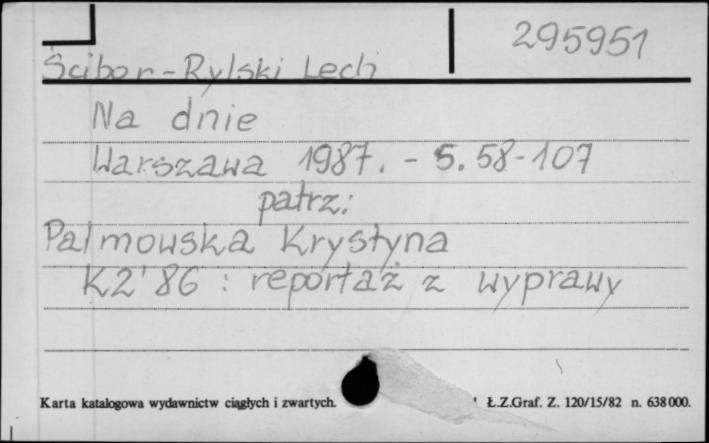 295951
Ścibor-Rylski Lech
Na dnie
Warszawa 1987. - S. 58-107
patrz:
Palmowska Krystyna
K2'86 : reportaż z wyprawy
Karta katalogowa wydawnictw ciągłych i zwartych. Ł.Z.Graf. Z. 120/15/82 n. 638000.